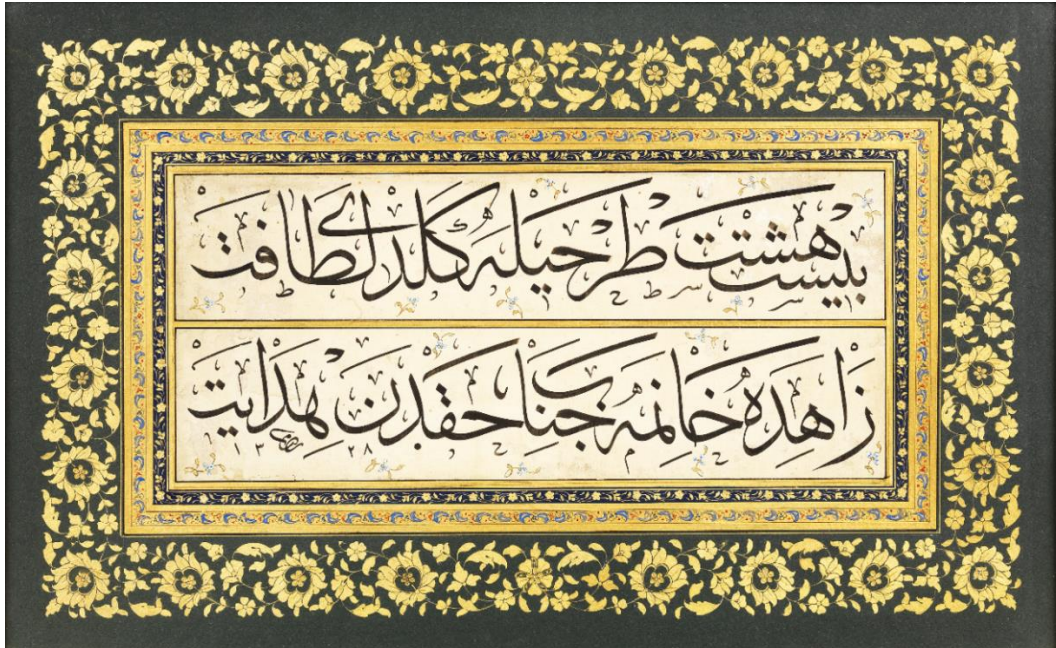 بیست هشت طرحیله كلدی لطافت
زاهده خانمه جناب حقدن هدایت
١٣٢٨